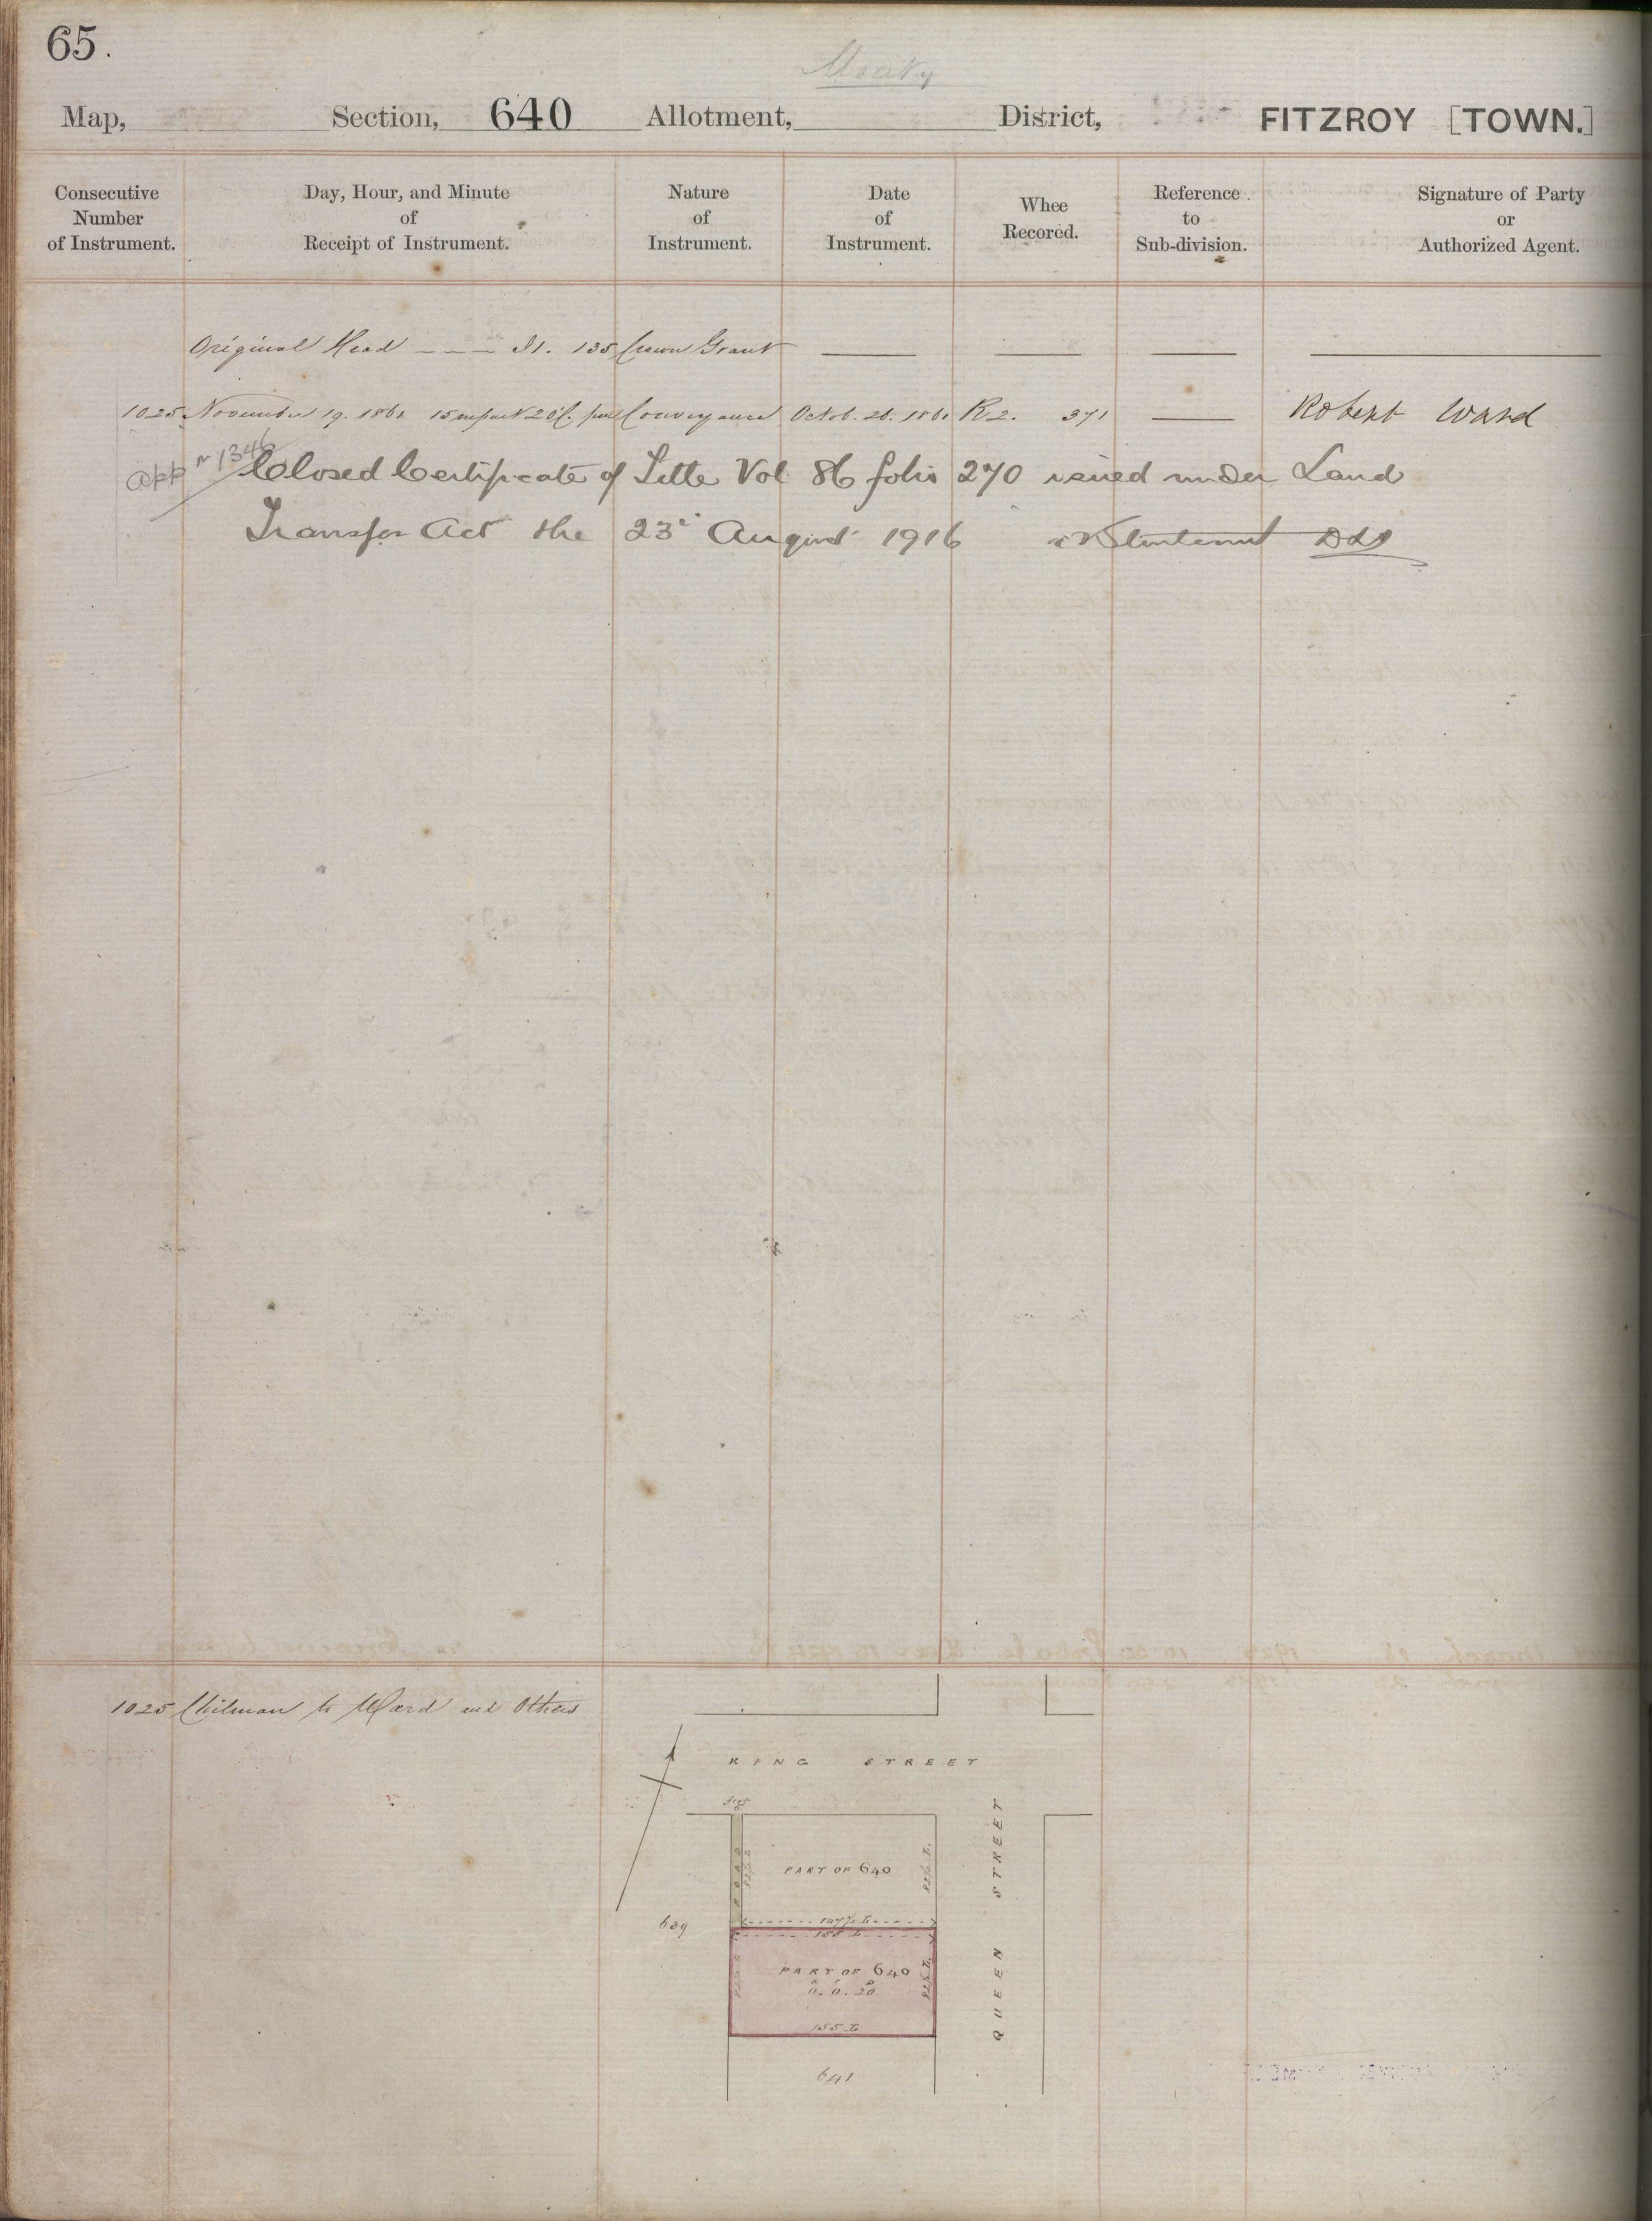 65.
Map, Section, 640 Allotment, District, FITZROY [TOWN.]
Consecutive Number of Instrument.
Day, Hour, and Minute of Receipt of Instrument.
Nature of Instrument.
Date of Instrument.
Whee Recored.
Reference to Sub-division.
Signature of Party or Authorized Agent.
Original Head - - - I1. 135 Crown Grant
1025 November 19. 1861 15 m past 2 o'C. Conveyance Octob. 26. 1861 R2. 371 Robert Ward
app n 1346
Closed Certificate of Title Vol 86 folio 270 issued under Land
Transfer Act the 23d August 1916 DLR
1025 Chilman to Ward and Others
KING STREET
ROAD
82½ L
PART OF 640
82½ L.
QUEEN STREET
639
147½ L
155 L
PART OF 640
A R P
0. 0. 20
82½ L.
155 L
641